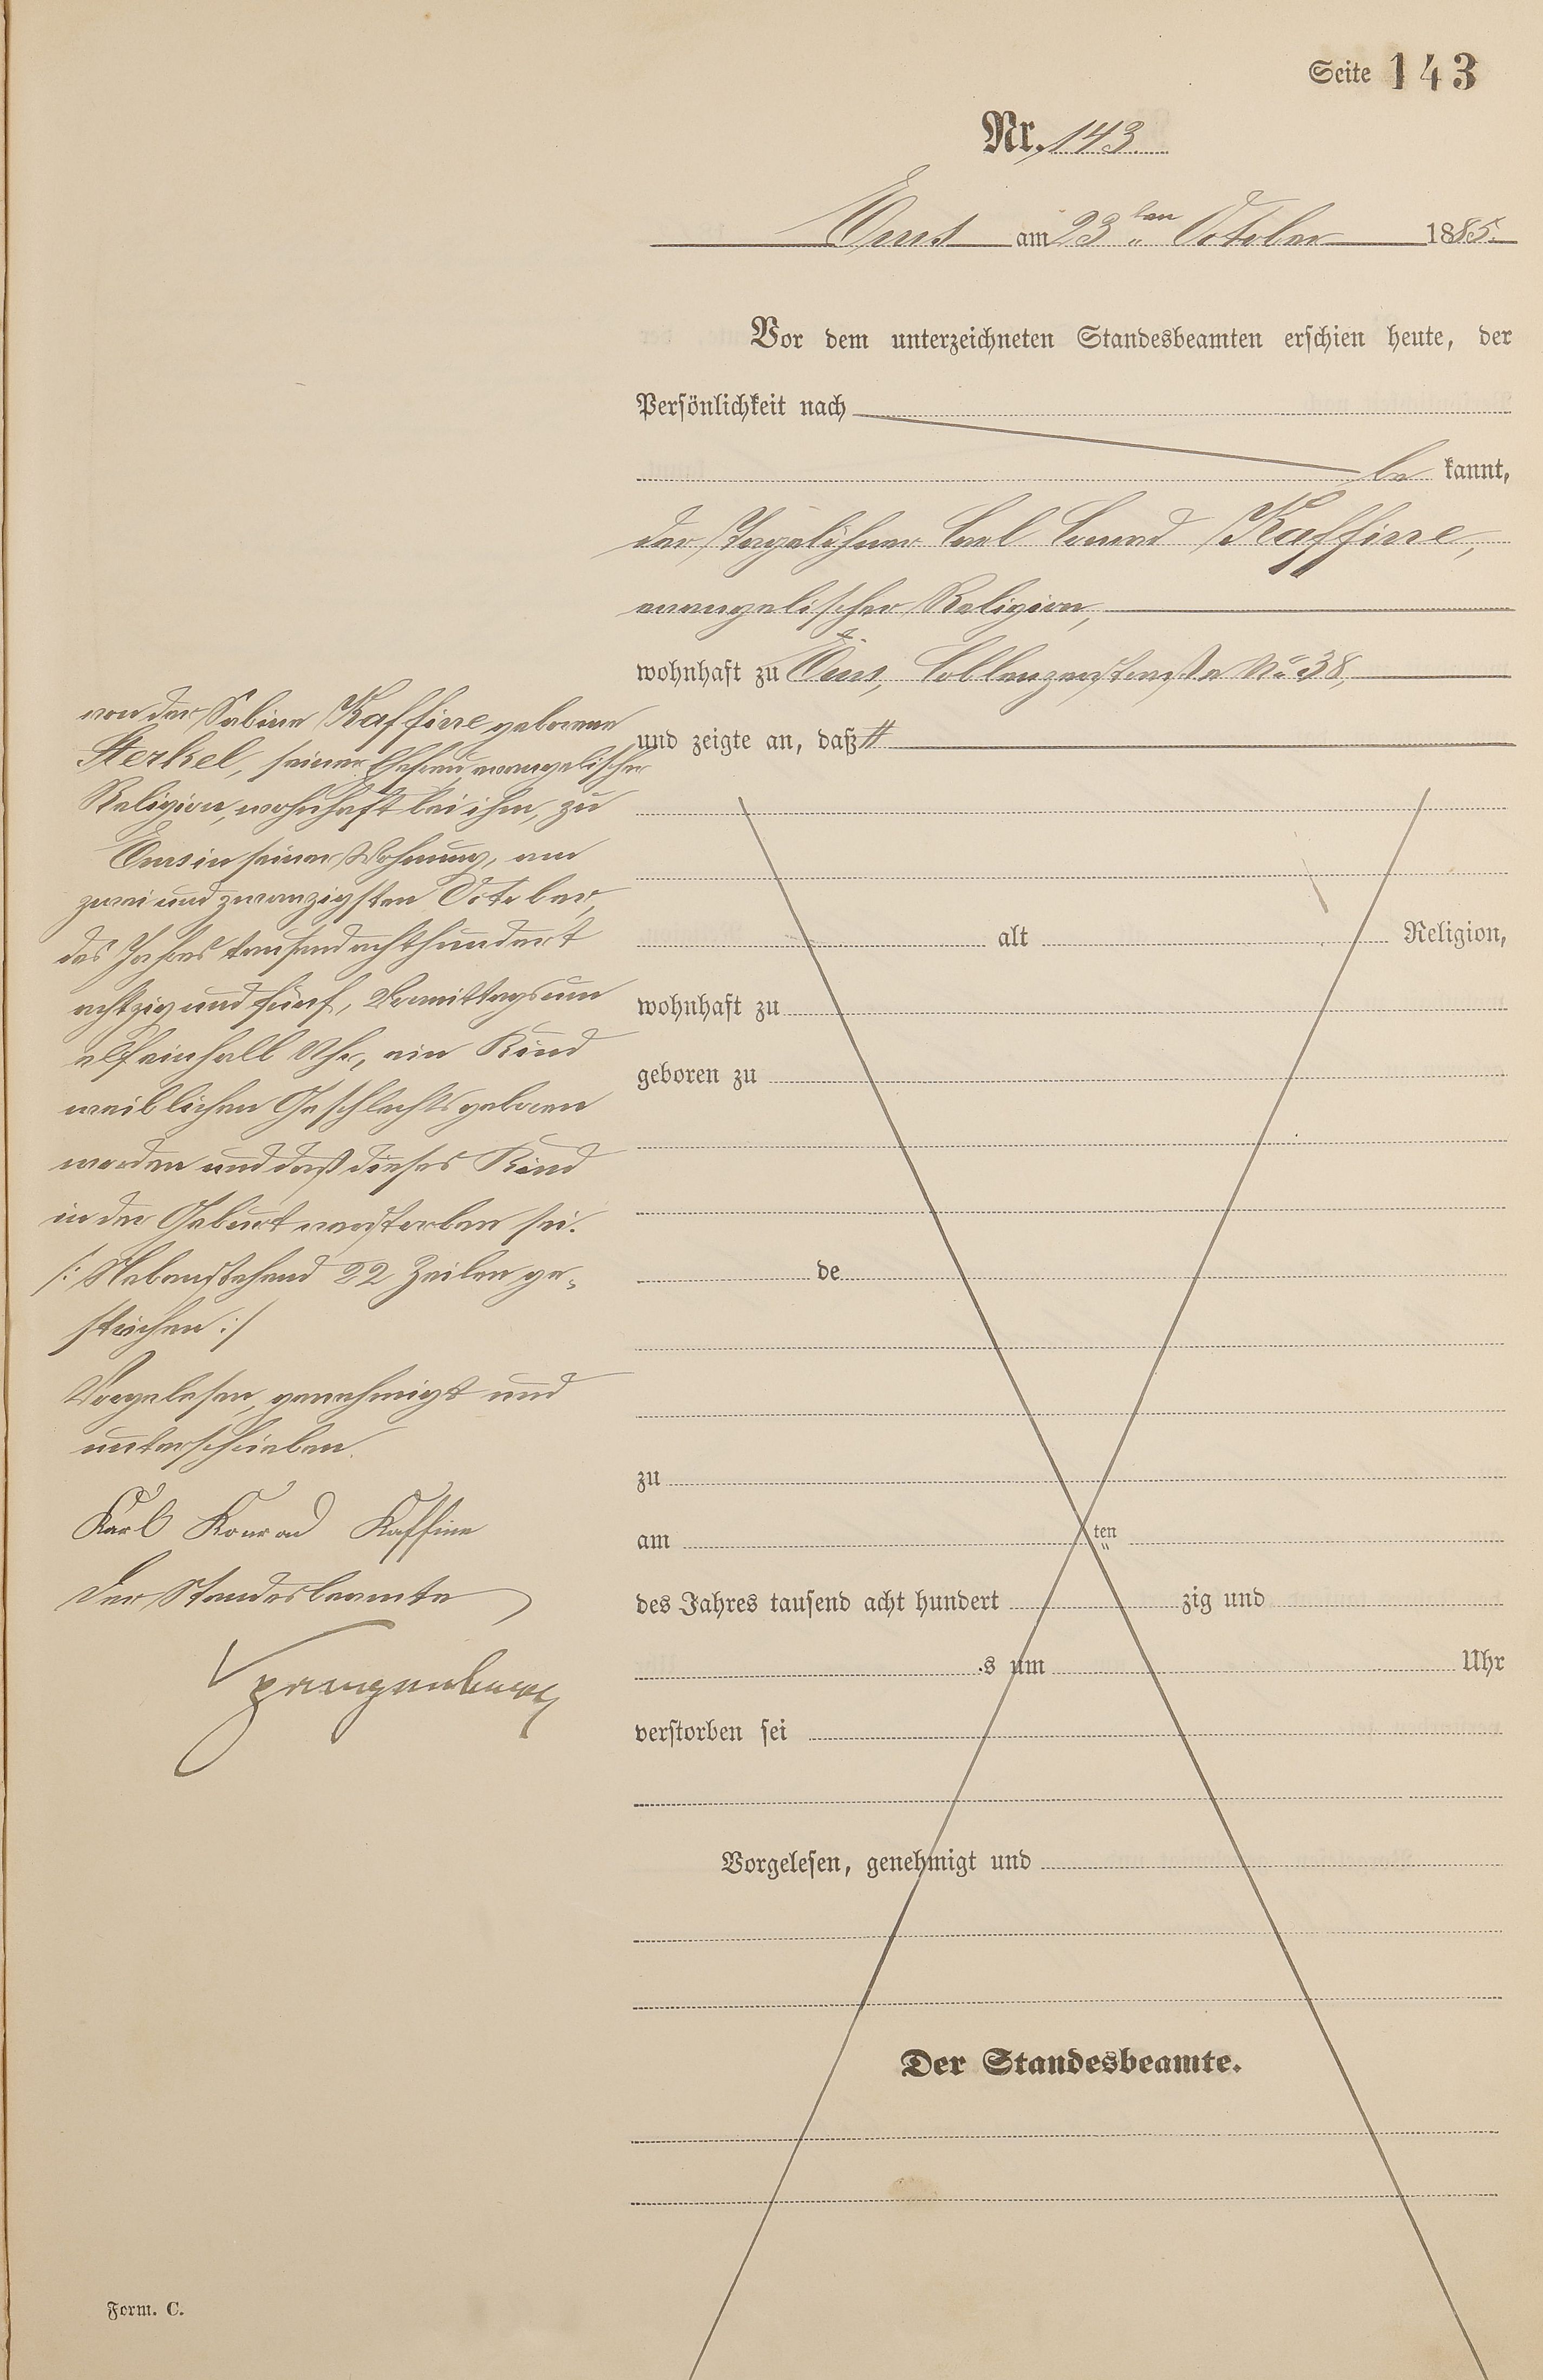 Seite 143
Nr. 143.
Ems am 23ten October 1885.
Vor dem unterzeichneten Standesbeamten erschien heute, der
Persönlichkeit nach
be kannt,
der Tagelöhner Carl Conrad Kaffine,
evangelischer Religion,
wohnhaft zu Ems, Coblenzerstraße No 38,
und zeigte an, daß #
von der Sabine Kaffine geborene
Sterkel, seiner Ehefrau, evangelischer
Religion, wohnhaft bei ihm, zu
Ems in seiner Wohnung, am
zwei und zwanzigsten October,
des Jahres tausend achthundert
achtzig und fünf, Vormittags um
elfeinhalb Uhr, ein Kind
weiblichen Geschlechts geboren
worden und daß dieses Kind
in der Geburt verstorben sei.
/: Nebenstehend 22 Zeilen ge-
strichen :/
Vorgelesen, genehmigt und
unterschrieben.
Karl Konrad Kaffine
Der Standesbeamte
Spangenberg
alt Religion,
wohnhaft zu
geboren zu
de
zu
am ten
des Jahres tausend acht hundert zig und
s um Uhr
verstorben sei
Vorgelesen, genehmigt und
Der Standesbeamte.
Form. C.